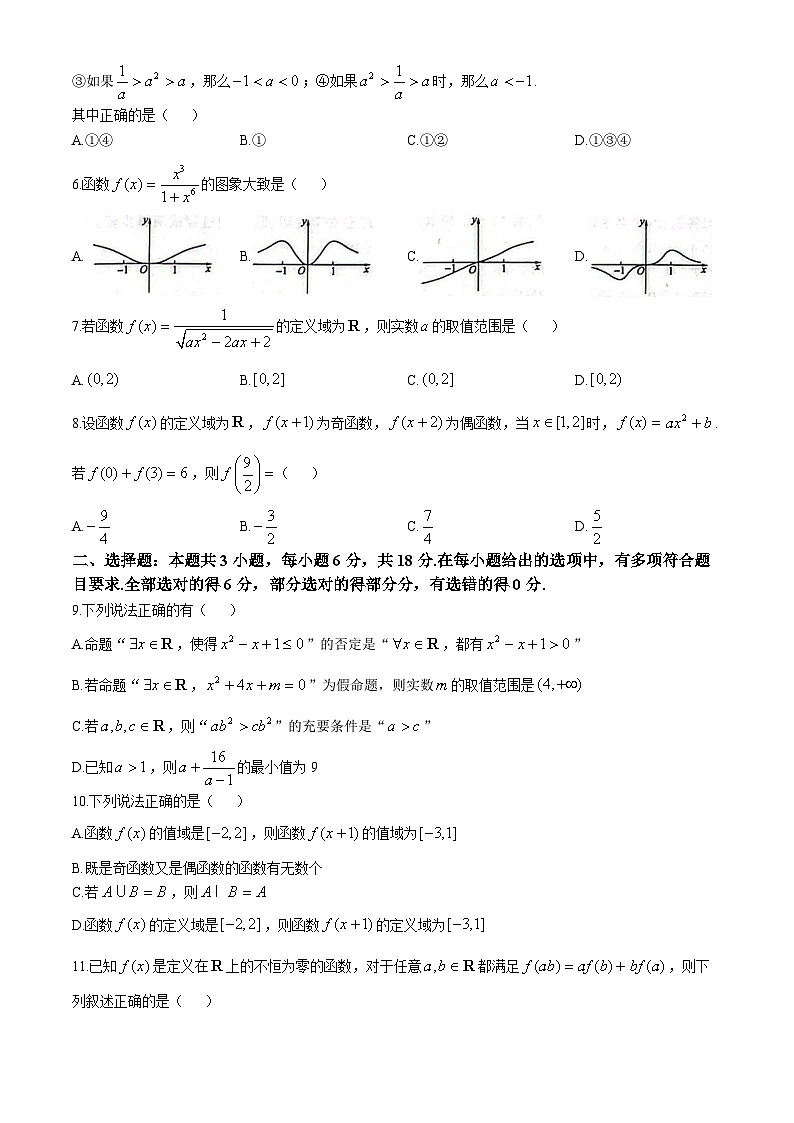 ③如果 1/a > a² > a ，那么 −1 < a < 0 ；④如果 a² > 1/a > a 时，那么 a < −1 .
其中正确的是（ ）
A.①④ B.① C.①② D.①③④
6.函数 f(x) = x³/(1+x⁶) 的图象大致是（ ）
A. y −1 O 1 x B. y −1 O 1 x C. y −1 O 1 x D. y −1 O 1 x
7.若函数 f(x) = 1/√(ax² − 2ax + 2) 的定义域为 R ，则实数 a 的取值范围是（ ）
A. (0,2) B. [0,2] C. (0,2] D. [0,2)
8.设函数 f(x) 的定义域为 R ， f(x+1) 为奇函数， f(x+2) 为偶函数，当 x∈[1,2] 时， f(x) = ax² + b .
若 f(0) + f(3) = 6 ，则 f(9/2) = （ ）
A. −9/4 B. −3/2 C. 7/4 D. 5/2
二、选择题：本题共 3 小题，每小题 6 分，共 18 分.在每小题给出的选项中，有多项符合题
目要求.全部选对的得 6 分，部分选对的得部分分，有选错的得 0 分.
9.下列说法正确的有（ ）
A.命题“ ∃x∈R ，使得 x² − x + 1 ≤ 0 ”的否定是“ ∀x∈R ，都有 x² − x + 1 > 0 ”
B.若命题“ ∃x∈R ， x² + 4x + m = 0 ”为假命题，则实数 m 的取值范围是 (4,+∞)
C.若 a,b,c∈R ，则“ ab² > cb² ”的充要条件是“ a > c ”
D.已知 a > 1 ，则 a + 16/(a−1) 的最小值为 9
10.下列说法正确的是（ ）
A.函数 f(x) 的值域是 [−2,2] ，则函数 f(x+1) 的值域为 [−3,1]
B.既是奇函数又是偶函数的函数有无数个
C.若 A∪B = B ，则 A I B = A
D.函数 f(x) 的定义域是 [−2,2] ，则函数 f(x+1) 的定义域为 [−3,1]
11.已知 f(x) 是定义在 R 上的不恒为零的函数，对于任意 a,b∈R 都满足 f(ab) = af(b) + bf(a) ，则下
列叙述正确的是（ ）